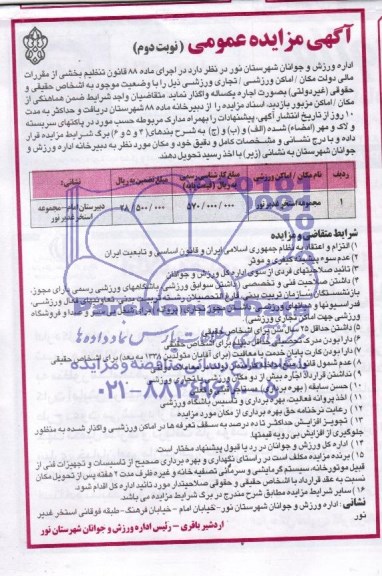 آگهی مزایده عمومی (نوبت دوم)
اداره ورزش و جوانان شهرستان نور در نظر دارد در اجرای ماده ۸۸ قانون تنظیم بخشی از مقررات
مالی دولت مکان / اماکن ورزشی / تجاری ورزشی ذیل را با وضعیت موجود به اشخاص حقیقی و
حقوقی (غیردولتی) بصورت اجاره یکساله واگذار نماید. متقاضیان واجد شرایط ضمن هماهنگی از
مکان / اماکن مزبور بازدید اسناد مزایده را از دبیرخانه ماده ۸۸ شهرستان دریافت و حداکثر به مدت
۱۰ روز از تاریخ انتشار آگهی، پیشنهادات را بهمراه مدارک مربوطه حسب مورد در پاکتهای سربسته
و لاک و مهر (امضاء) شده (الف) و (ب) و (ج) به شرح بندهای (۴ و ۵ و ۶) برگ شرایط مزایده قرار
داده و با درج نشانی و مشخصات کامل و دقیق خود و مکان مورد نظر به دبیرخانه اداره ورزش و
جوانان شهرستان به نشانی (زیر) با اخذ رسید تحویل دهند.
ردیف نام مکان / اماکن ورزشی مبلغ کارشناسی رسمی به ریال (قیمت پایه) مبلغ تضمین به ریال نشانی:
۱ مجموعه استخر غدیر نور ۵۷۰/۰۰۰/۰۰۰ ۲۸/۵۰۰/۰۰۰ دبیرستان امام - مجموعه استخر غدیر نور
شرایط متقاضی و مزایده
۱) التزام و اعتقاد به نظام جمهوری اسلامی ایران و قانون اساسی و تابعیت ایران
۲) عدم سوء پیشینه کیفری و موثر
۳) تائید صلاحیتهای فردی از سوی اداره کل ورزش و جوانان
۴) داشتن صلاحیت فنی و تخصصی (داشتن سوابق ورزشی، باشگاههای ورزشی رسمی دارای مجوز،
بازنشستگان سازمان تربیت بدنی، فارغ التحصیلان رشته تربیت بدنی، تعاونیهای فعال ورزشی،
ورزشی جهت اماکن تجاری ورزشی
۵) داشتن حداقل ۲۵ سال سن برای اشخاص حقیقی
۶) دارا بودن مدرک تحصیلی
۷) دارا بودن کارت پایان خدمت یا معافیت (برای آقایان متولدین ۱۳۳۸ به بعد) برای اشخاص حقیقی
۸) عدم شمول قانون منع مداخله
۹) نداشتن قرارداد اجاره بیش از دو مکان ورزشی یا تجاری ورزشی
۱۰) حسن سابقه (بهره برداری
۱۱) اخذ پروانه فعالیت، بهره برداری و تاسیس باشگاه ورزشی
۱۲) رعایت نرخنامه حق بهره برداری از مکان مورد مزایده
۱۳) تجویز افزایش حداکثر تا ده درصد به سقف تعرفه ها در اماکن ورزشی واگذار شده به منظور
جلوگیری از افزایش بی رویه قیمتها.
۱۴) اداره کل ورزش و جوانان در رد یا قبول پیشنهاد مختار است
۱۵) برنده مزایده مکلف است در راستای نگهداری و بهره برداری صحیح از تاسیسات و تجهیزات فنی از
قبیل موتورخانه، سیستم گرمایشی و سرمائی تصفیه خانه و غیره ظرف مدت ۲ هفته پس از تحویل مکان
نسبت به عقد قرارداد با اشخاص حقیقی و حقوقی صلاحیتدار مورد تائید اداره کل اقدام شود.
۱۶) سایر شرایط مزایده مطابق شرح مندرج در برگ شرایط مزایده می باشد.
نشانی: اداره ورزش و جوانان شهرستان نور-خیابان امام - خیابان فرهنگ-طبقه فوقانی استخر غدیر
نور
اردشیر باقری - رئیس اداره ورزش و جوانان شهرستان نور
پایگاه اطلاع رسانی مناقصه و مزایده
۰۲۱-۸۸۳۴۹۶۷۰-۵